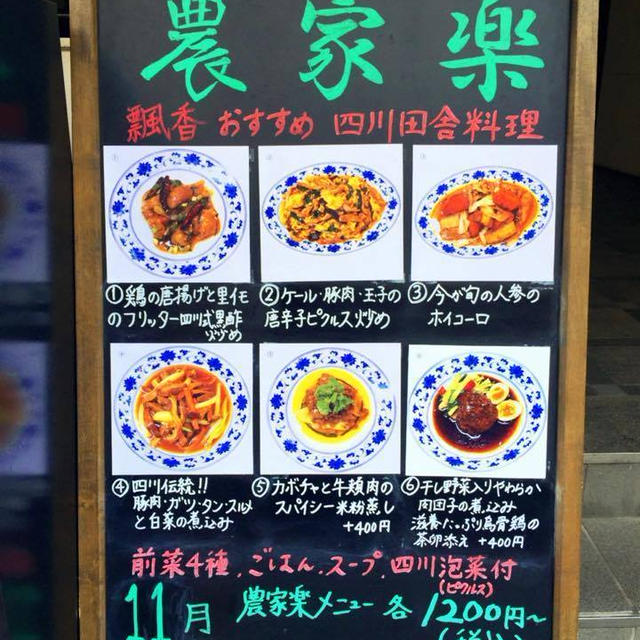 農家楽
飄香 おすすめ 四川田舎料理
①鶏の唐揚げと里イモ
のフリッター四川式黒酢
炒め
②ケール・豚肉・玉子の
唐辛子ピクルス炒め
③今が旬の人参の
ホイコーロ
④四川伝統!!
豚肉・ガツ・タン・スルメ
と白菜の煮込み
⑤カボチャと牛頬肉の
スパイシー米粉蒸し
+400円
⑥干し野菜入りやわらか
肉団子の煮込み
滋養たっぷり烏骨鶏の
茶卵添え +400円
前菜4種、ごはん、スープ、四川泡菜付
(ピクルス)
11月 農家楽メニュー各1200円~